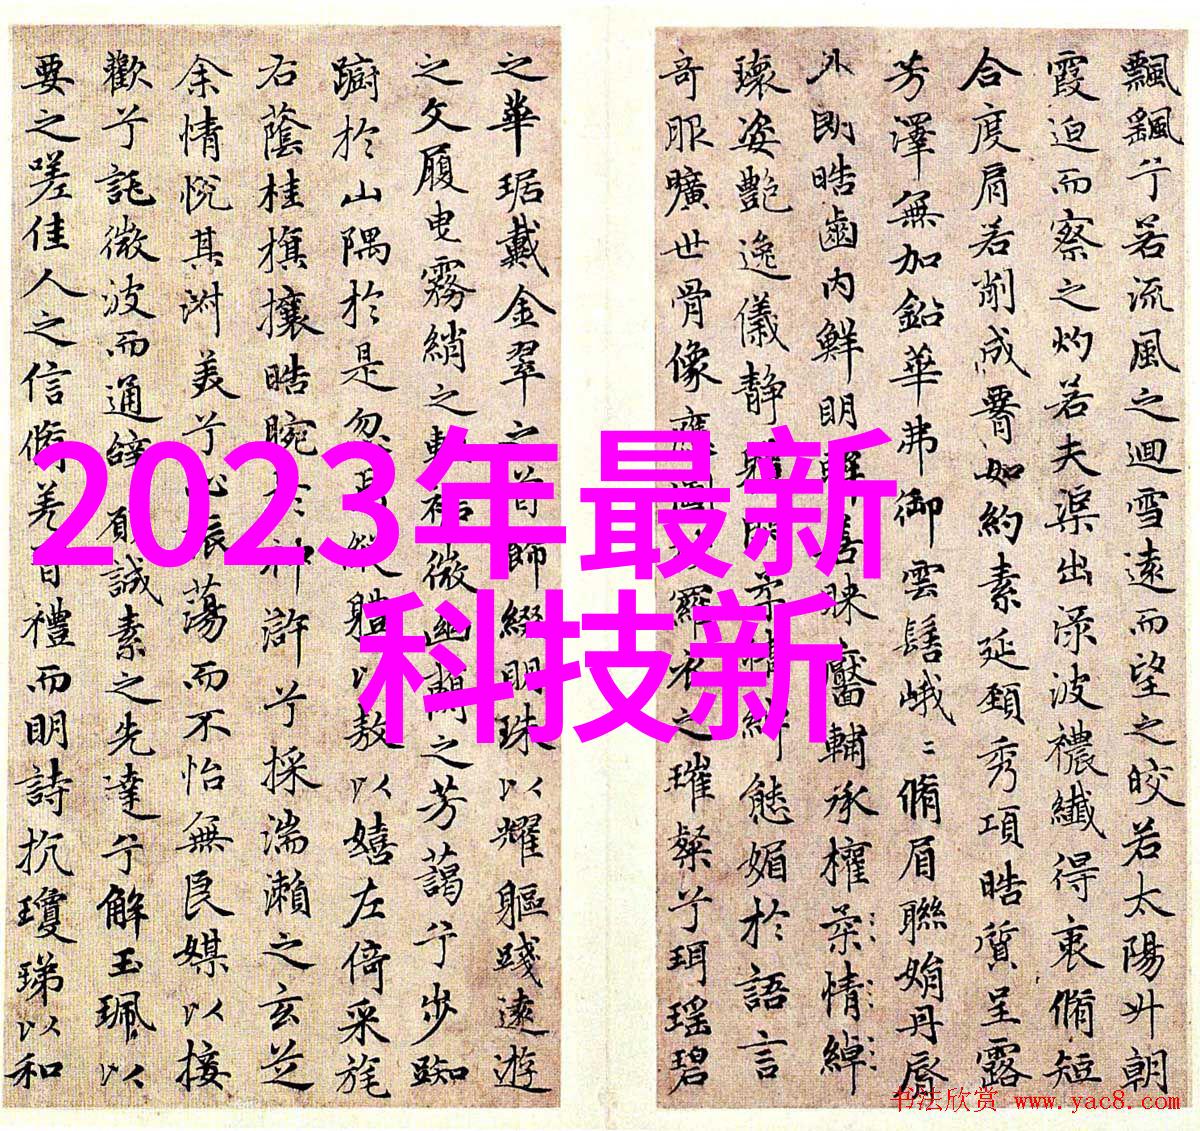 飄飖兮若流風之迴雪遠而望之皎若太陽升朝
霞迫而察之灼若夫渠出淥波襛纖得衷脩短
合度肩若削成腰如約素延頸秀項皓質呈露
芳澤無加鉛華弗御雲髻峨〻脩眉聯娟丹脣
外朗皓齒内鮮明眸善睞靨輔承權柔情綽
瓌姿艷逸儀静體閑柔情綽態媚於語言
奇服曠世骨像應圖披羅衣之璀粲兮珥瑶碧
之華琚戴金翠之首飾綴明珠以耀軀踐遠遊
之文履曳霧綃之輕裾微幽蘭之芳藹兮步踟
躕於山隅於是忽焉縱體以敖以嬉左倚采旄
右蔭桂旗攘皓腕於神滸兮採湍瀨之玄芝
余情悦其淑美兮心振蕩而不怡無良媒以接
歡兮託微波而通辭願誠素之先達兮解玉珮以
要之嗟佳人之信脩羌習禮而明詩抗瓊珶以和
2023年最新
科技新
书法欣赏 www.yac8.com